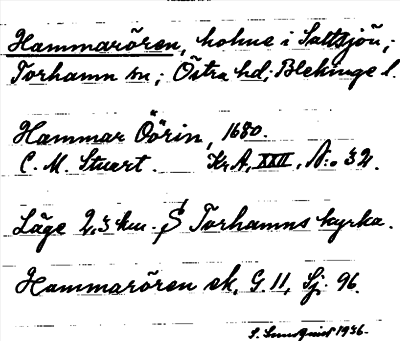 Hammarören, holme i Saltsjön;
Torhamn sn; Östra hd; Blekinge l.
Hammar Öörin, 1680.
C. M. Stuart. Kr.A, XXII, N:o 32.
Läge 2,3 km. S Torhamns kyrka.
Hammarören ek, G. 11, Sj. 96.
S. Sundquist 1936.